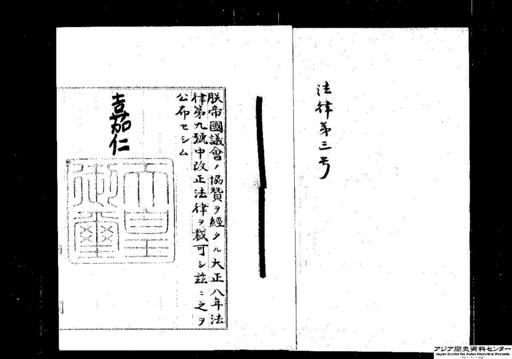 法律第三号
朕帝國議會ノ協贊ヲ經タル大正八年法
律第九號中改正法律ヲ裁可シ茲ニ之ヲ
公布セシム
嘉仁
天皇
御璽
アジア歴史資料センター
Japan Center for Asian Historical Records